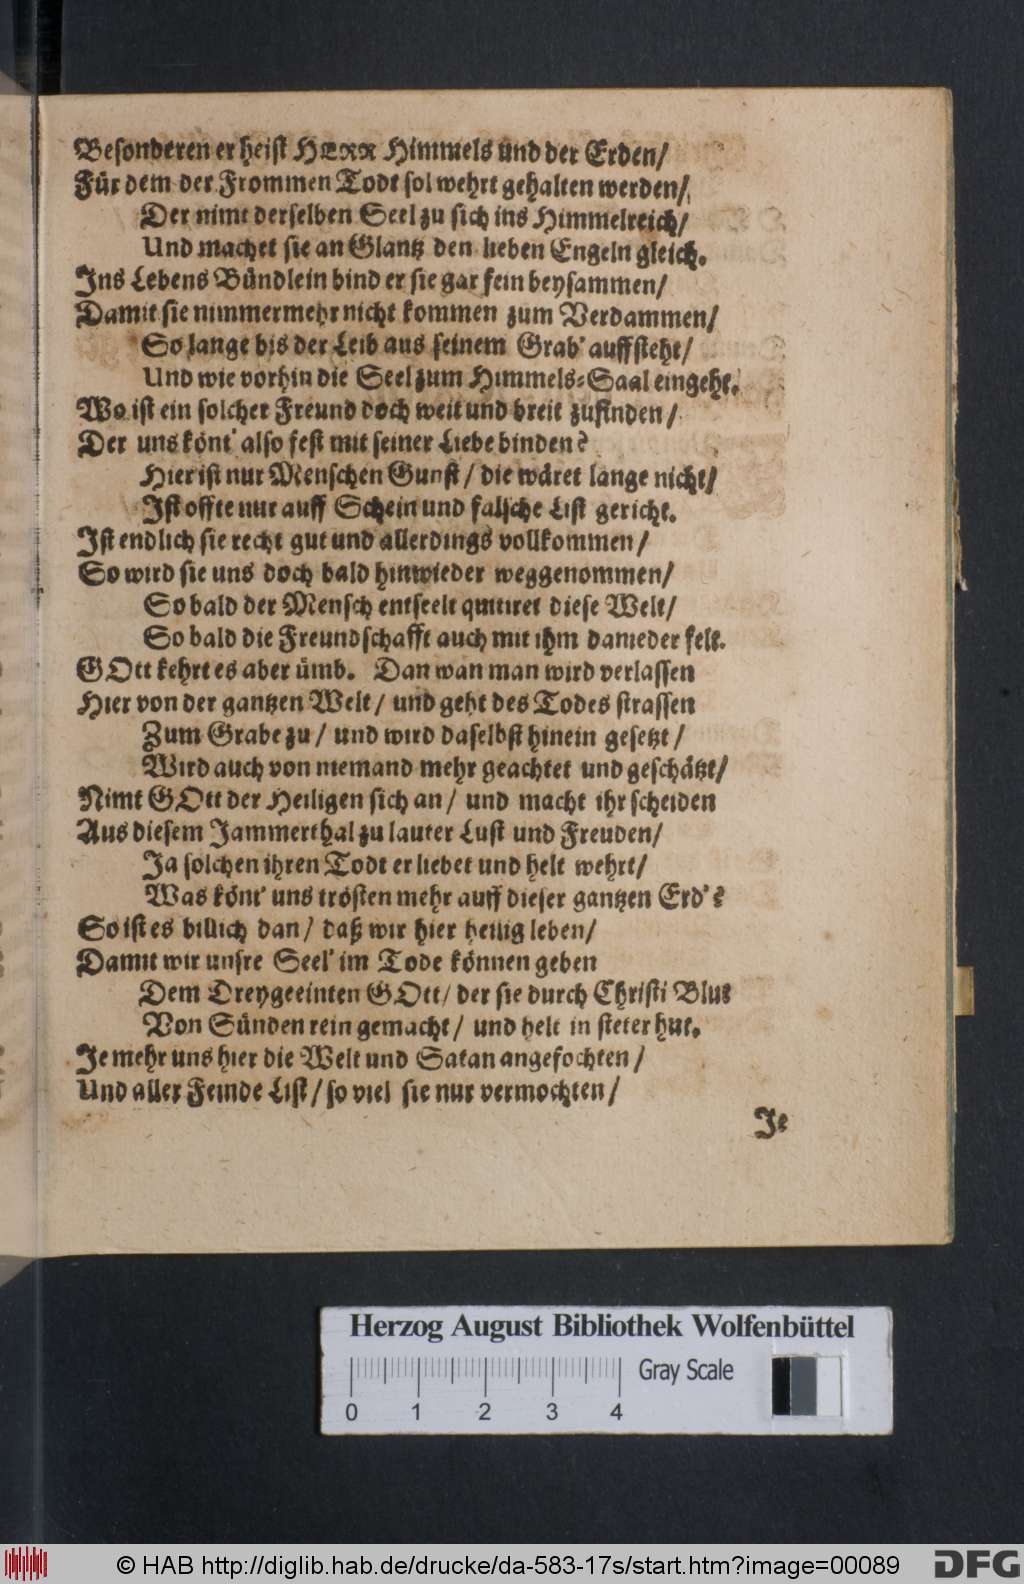 Besonderen er heist HERR Himmels und der Erden/
Für dem der Frommen Todt sol wehrt gehalten werden/
Der nimt derselben Seel zu sich ins Himmelreich/
Und machet sie an Glantz den lieben Engeln gleich.
Ins Lebens Bündlein bind er sie gar fein beysammen/
Damit sie nimmermehr nicht kommen zum Verdammen/
So lange bis der Leib aus seinem Grab' auffsteht/
Und wie vorhin die Seel zum Himmels-Saal eingeht.
Wo ist ein solcher Freund doch weit und breit zufinden/
Der uns könt' also fest mit seiner Liebe binden?
Hier ist nur Menschen Gunst/ die wäret lange nicht/
Ist offte nur auff Schein und falsche List gericht.
Ist endlich sie recht gut und allerdings vollkommen/
So wird sie uns doch bald hinwieder weggenommen/
So bald der Mensch entseelt quitiret diese Welt/
So bald die Freundschafft auch mit ihm danieder felt.
GOtt kehrt es aber ümb. Dan wan man wird verlassen
Hier von der gantzen Welt/ und geht des Todes strassen
Zum Grabe zu/ und wird daselbst hinein gesetzt/
Wird auch von niemand mehr geachtet und geschätzt/
Nimt GOtt der Heiligen sich an/ und macht ihr scheiden
Aus diesem Jammerthal zu lauter Lust und Freuden/
Ja solchen ihren Todt er liebet und helt wehrt/
Was könt' uns trösten mehr auff dieser gantzen Erd'?
So ist es billich dan/ daß wir hier heilig leben/
Damit wir unsre Seel' im Tode können geben
Dem Dreygeeinten GOtt/ der sie durch Christi Blut
Von Sünden rein gemacht/ und helt in steter hut.
Je mehr uns hier die Welt und Satan angefochten/
Und aller Feinde List/ so viel sie nur vermochten/
Je
Herzog August Bibliothek Wolfenbüttel
Gray Scale
0 1 2 3 4
© HAB http://diglib.hab.de/drucke/da-583-17s/start.htm?image=00089
DFG